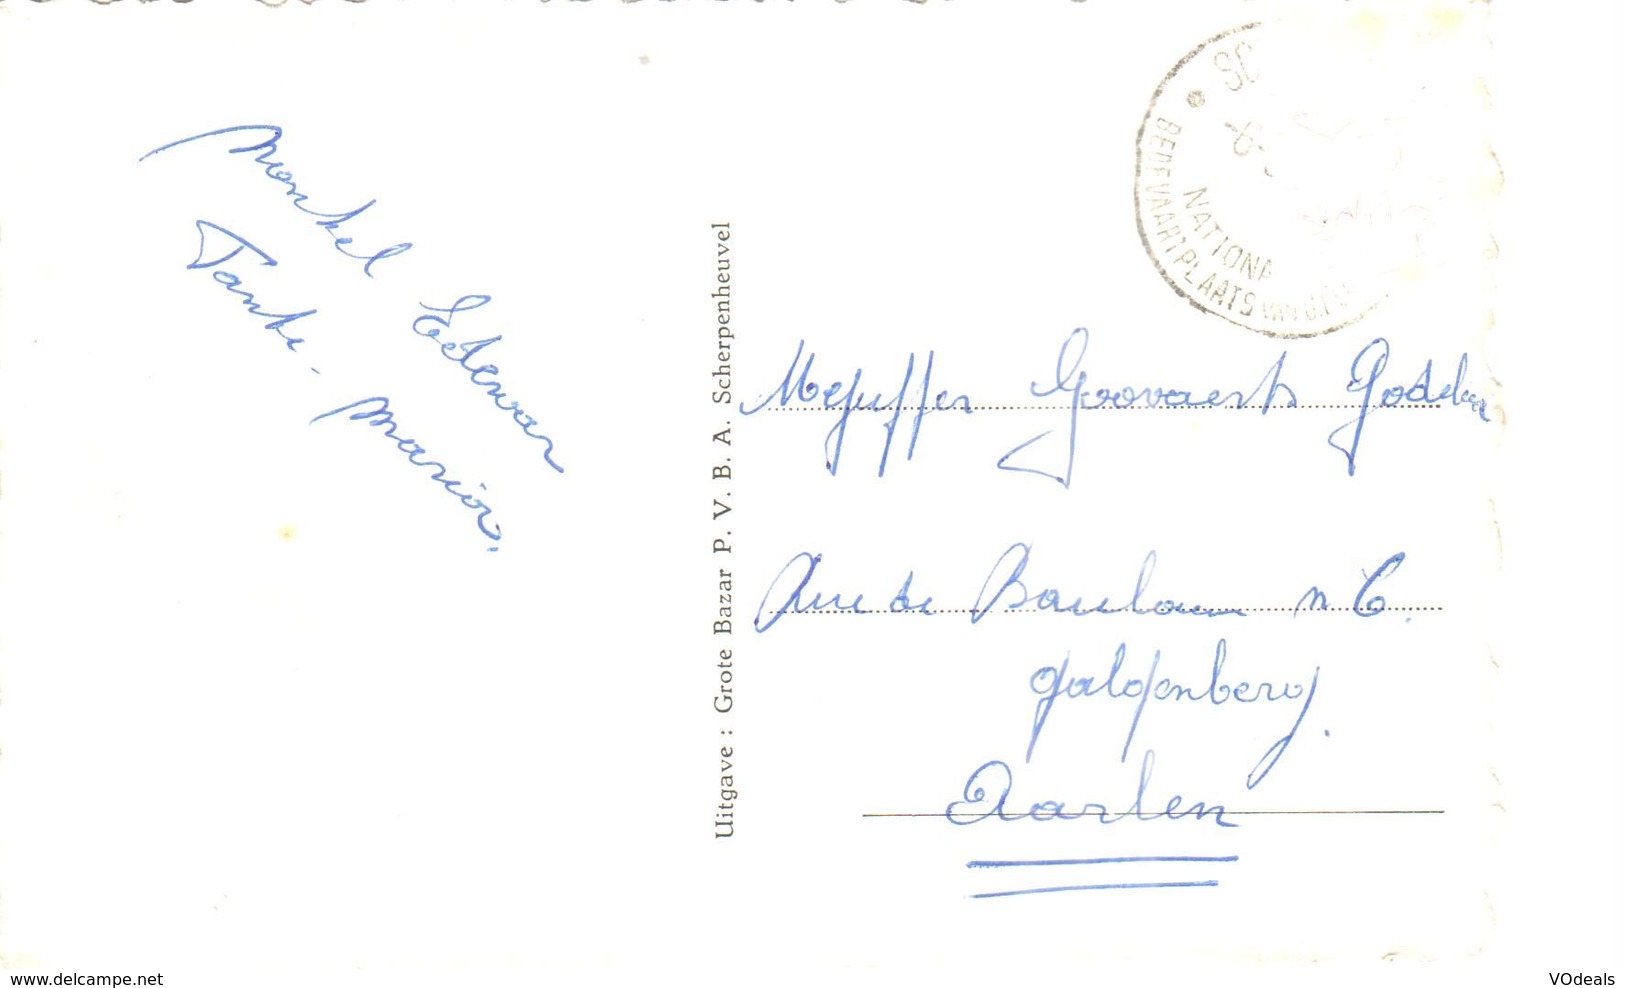 Nonkel Edewar
Tante - Maria.
Uitgave : Grote Bazar P. V. B. A. Scherpenheuvel
SC
-6-
NATIONA
BEDEVAARTPLAATS VAN
Mejuffer Goovaerts
Rue de n 6.
galgenberg.
Aarlen
www.delcampe.net
VOdeals